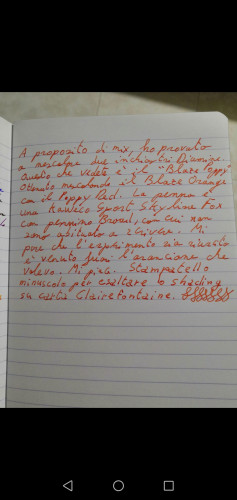 A proposito di mix, ho provato
a mescolare due inchiostri Diamine.
Quello che vedete è il "Blaze Poppy"
Ottenuto mescolando il Blaze Orange
con il Poppy Red. La penna è
una Kaweco Sport Skyline Fox
con pennino Broad, con cui non
sono abituato a scrivere. Mi
pare che l'esperimento sia riuscito
è venuto fuori l'arancione che
volevo. Mi piace. Stampatello
minuscolo per esaltare lo shading
su carta Clairefontaine.